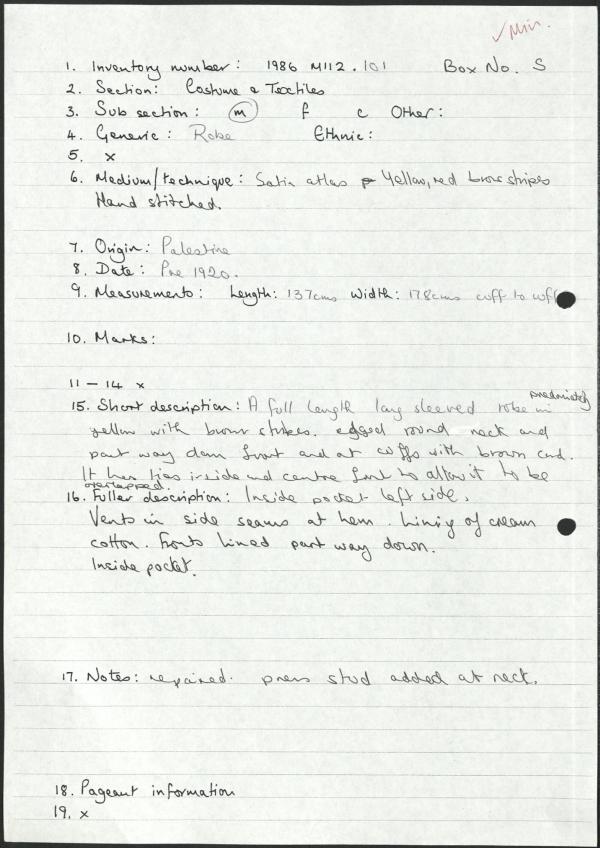 ✓ Min.
1. Inventory number : 1986 M112 . 101 Box No. S
2. Section: Costume & Textiles
3. Sub section : m f c Other:
4. Generic : Robe Ethnic :
5. x
6. Medium/technique : Satin atlas Yellow, red brown stripes
Hand stitched.
7. Origin : Palestine
8. Date : Pre 1920.
9. Measurements : Length: 137cms Width: 178cms cuff to cuff
10. Marks:
11 – 14 x
15. Short description : A full length long sleeved robe in predominately
yellow with brown stripes. edged round neck and
part way down front and at cuffs with brown cord.
It has ties inside and centre front to allow it to be
overlapped.
16. Fuller description : Inside pocket left side.
Vents in side seams at hem. Lining of cream
cotton. Fronts lined part way down.
Inside pocket.
17. Notes: repaired. press stud added at neck.
18. Pageant information
19. x